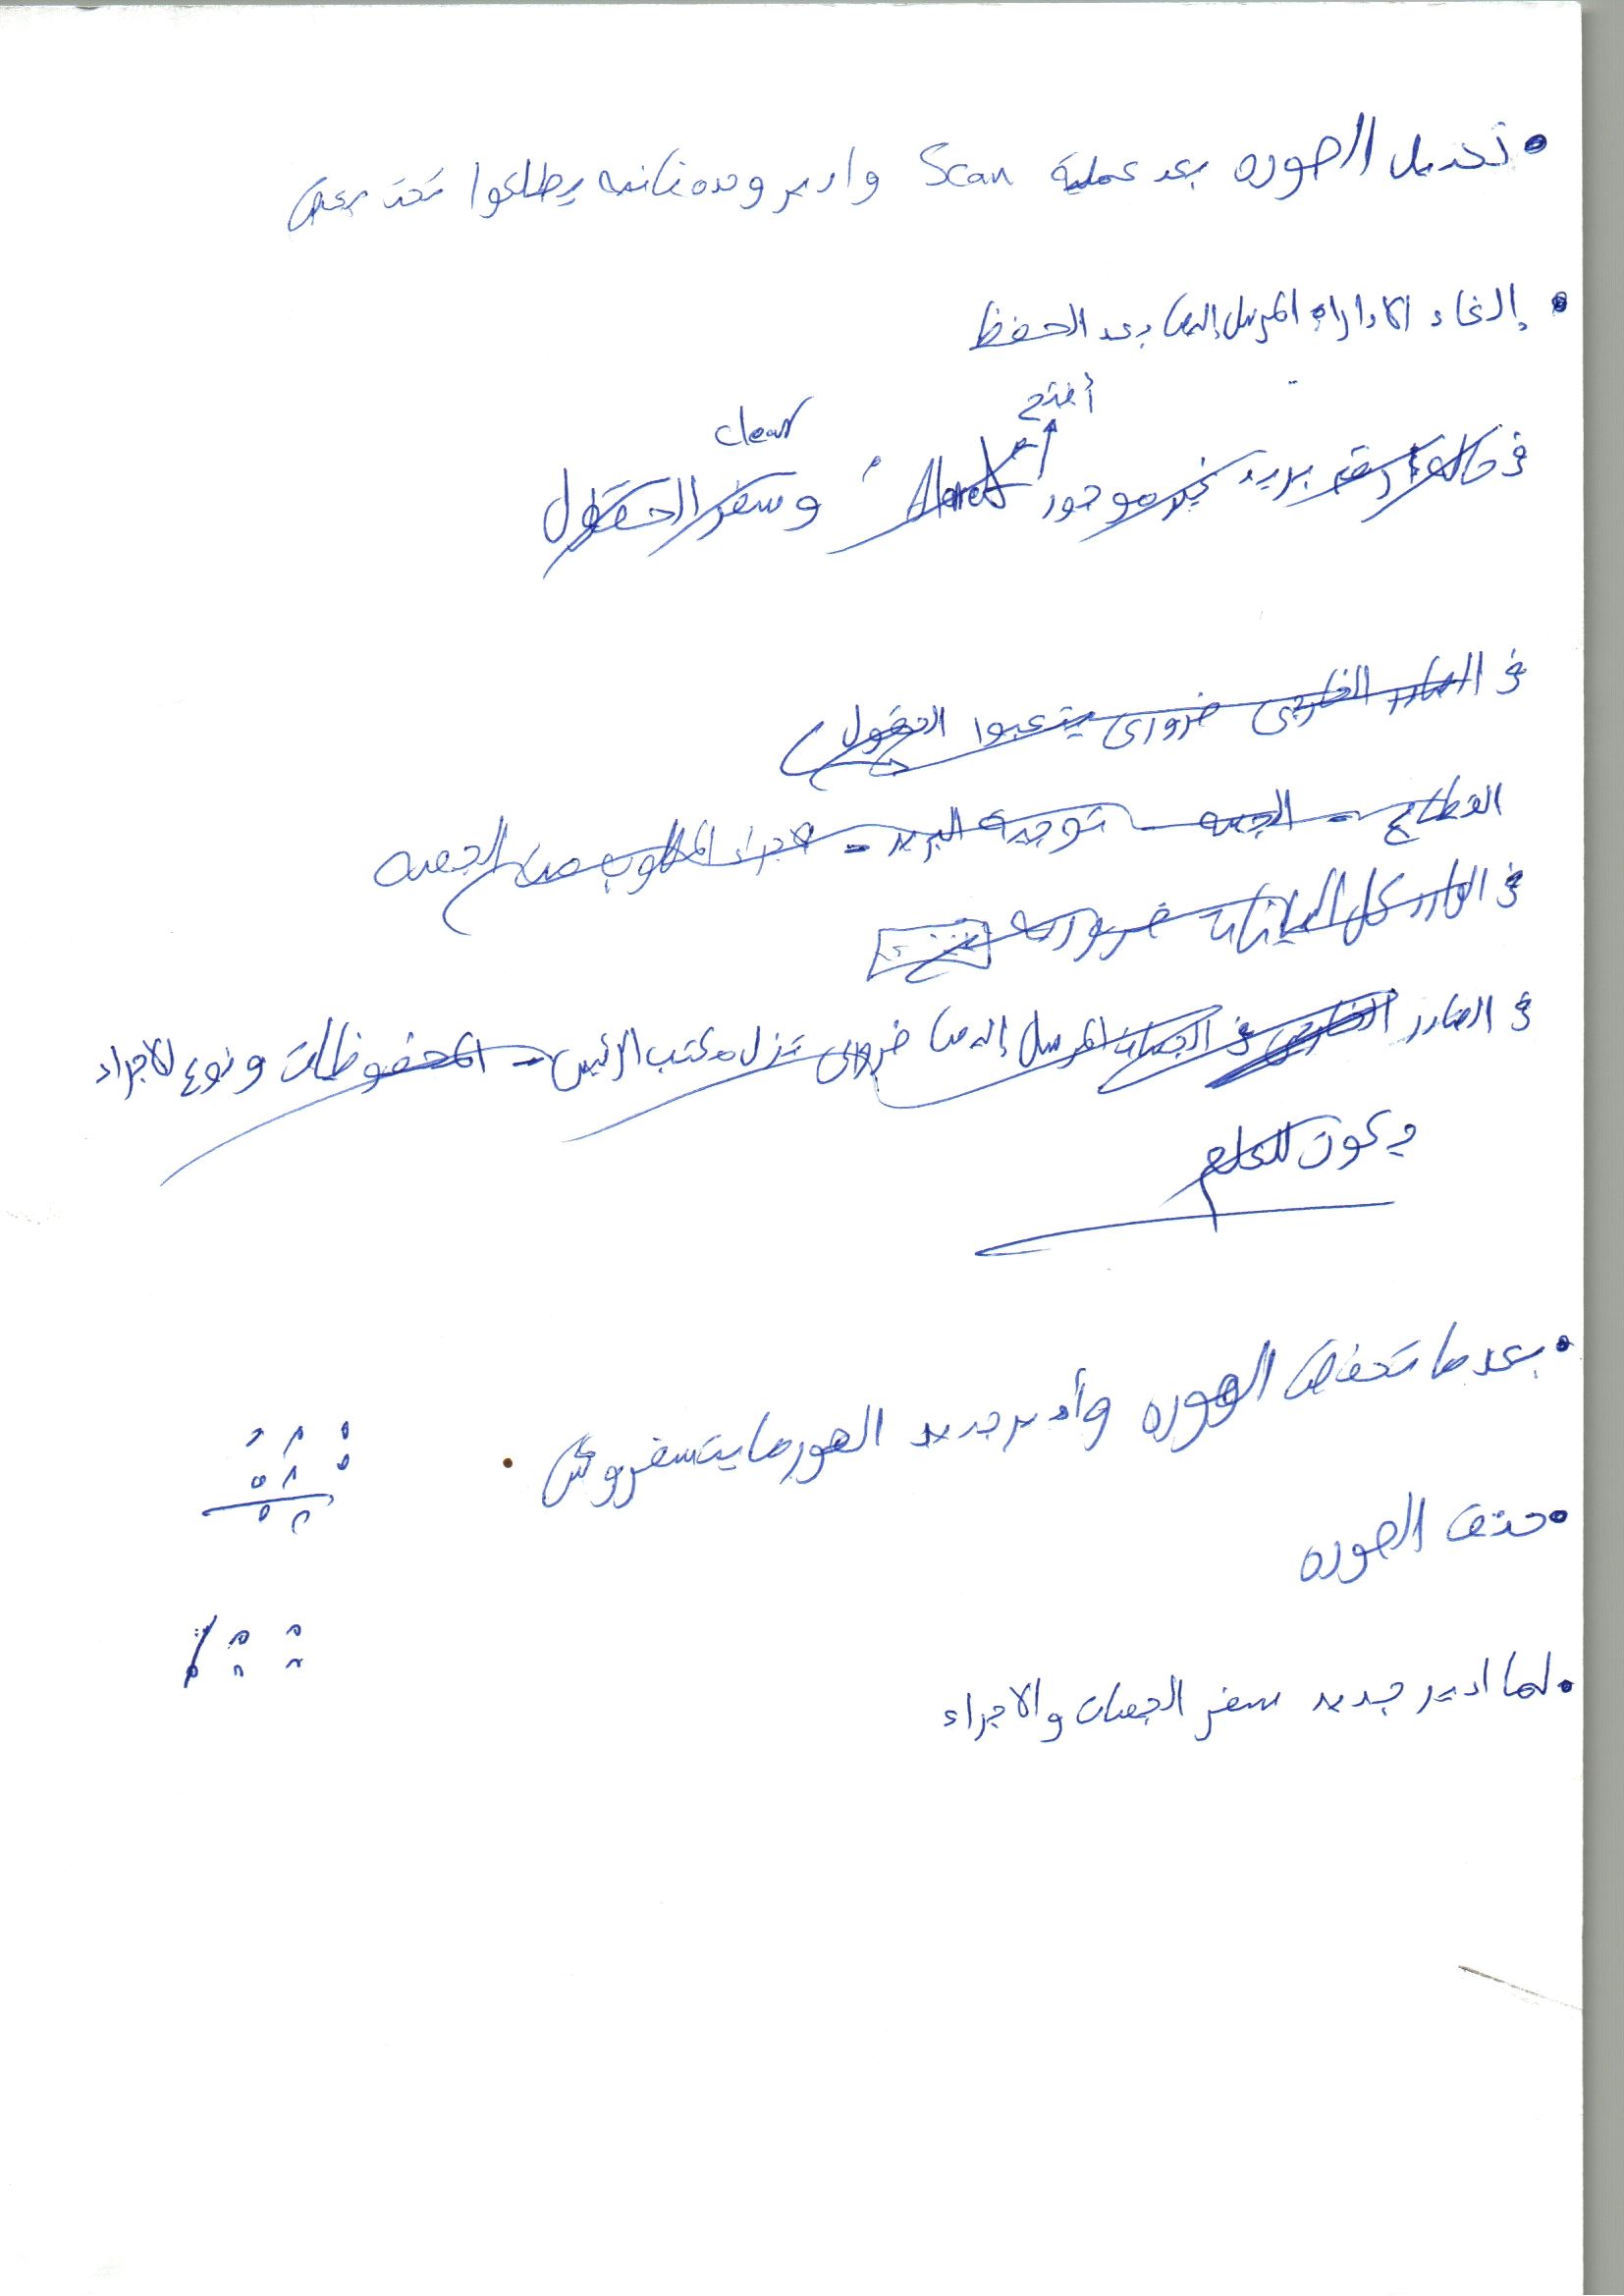 • تحميل الصوره بعد عملية Scan وادير وحده ثانيه يطلعوا تحت بعض
• إلغاء الادارات المرسل إليها بعد الحفظ
أفتح
clear
في حالة رقم بريد غير موجود "Alert" وسفر الحقول
في الصادر الخارجي ضروري يتعبوا الحقول
القطاع - الجهه - توجية البريد - الاجراء المطلوب من الجهه
في الوارد كل البيانات ضروريه
في الصادر الخارجي في الجهات المرسل إليها ضروري تنزل مكتب الرئيس - المحفوظات ونوع الاجراء
يكون للعلم
• بعد ما تحفظ الصوره وأدير جديد الصور ما يتسفروش
• حذف الصوره
• لما ادير جديد سفر الجهات والاجراء